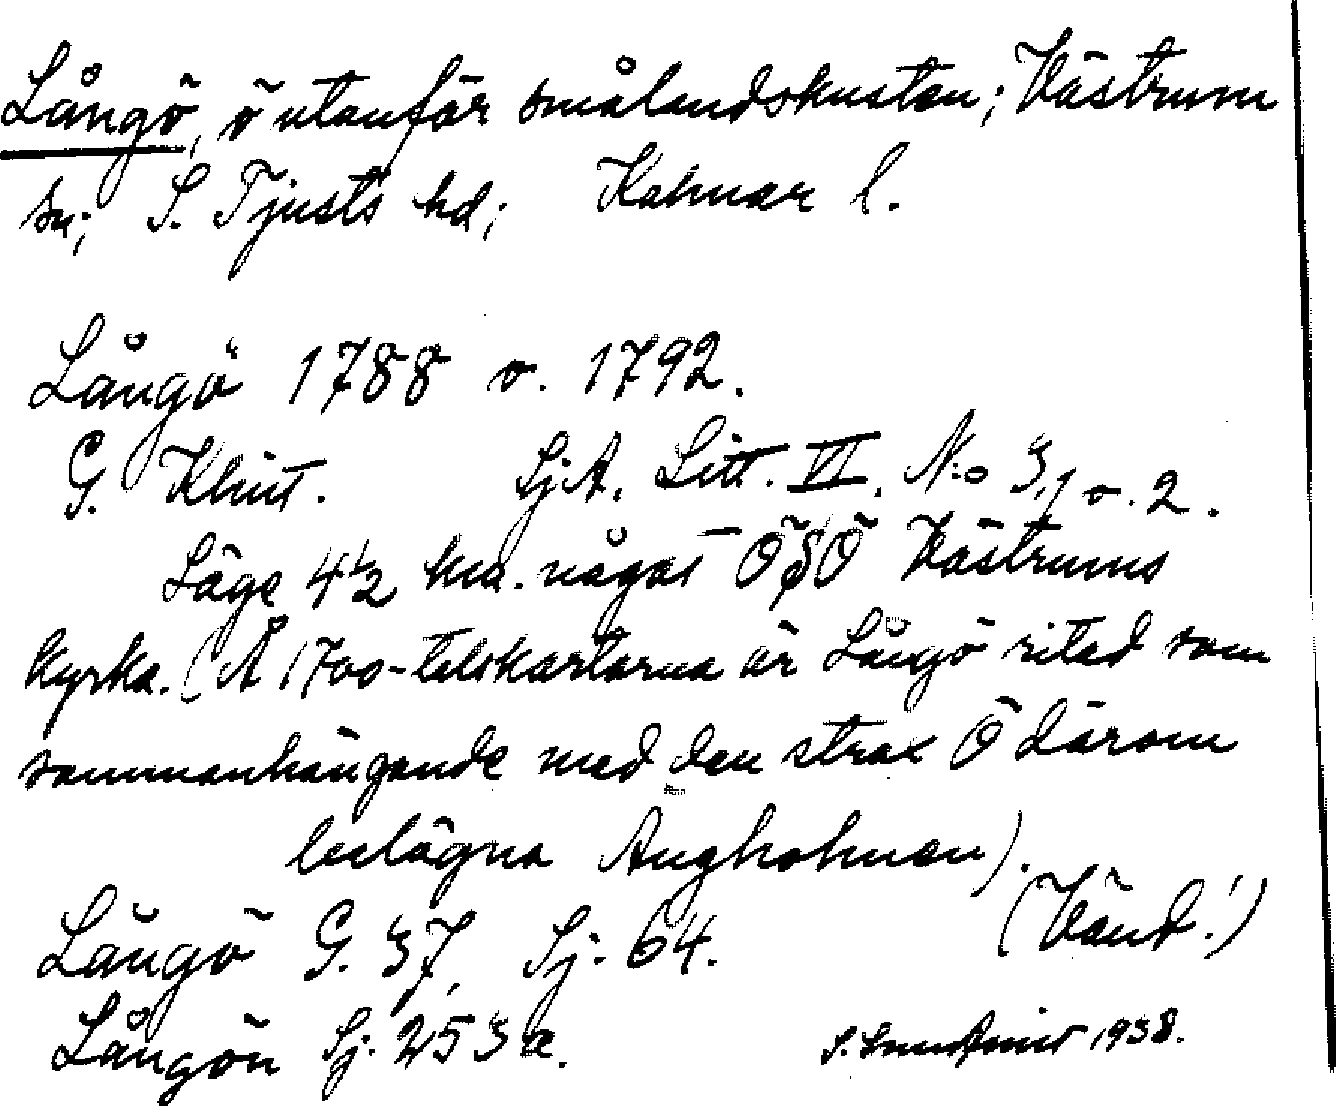 Långö, ö utanför smålandskusten; Västrum
sn; S. Tjusts hd; Kalmar l.
Långö 1788 o. 1792.
G. Klint. SjA. Litt. VI. N:o 3,1 o. 2.
Läge 4 1/2 km. något ÖSÖ Västrums
kyrka. (Å 1700-talskartorna är Långö ritad som
sammanhängande med den strax Ö därom
belägna Ängholmen).
(Vänd!)
Långö G. 37, Sj. 64.
Långön Sj. 253 a.
1938.